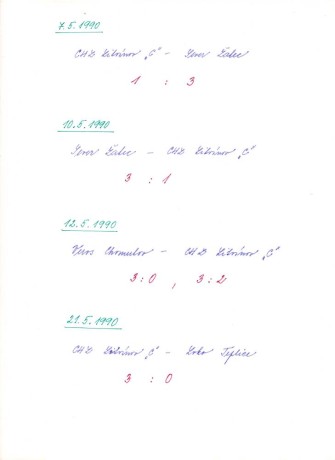 7.5.1990
CHZ Litvínov „C“ – Sever Žatec
1 : 3
10.5.1990
Sever Žatec – CHZ Litvínov „C“
3 : 1
12.5.1990
Chomutov – CHZ Litvínov „C“
3:0 , 3:2
21.5.1990
CHZ Litvínov „C“ – Loko Teplice
3 : 0